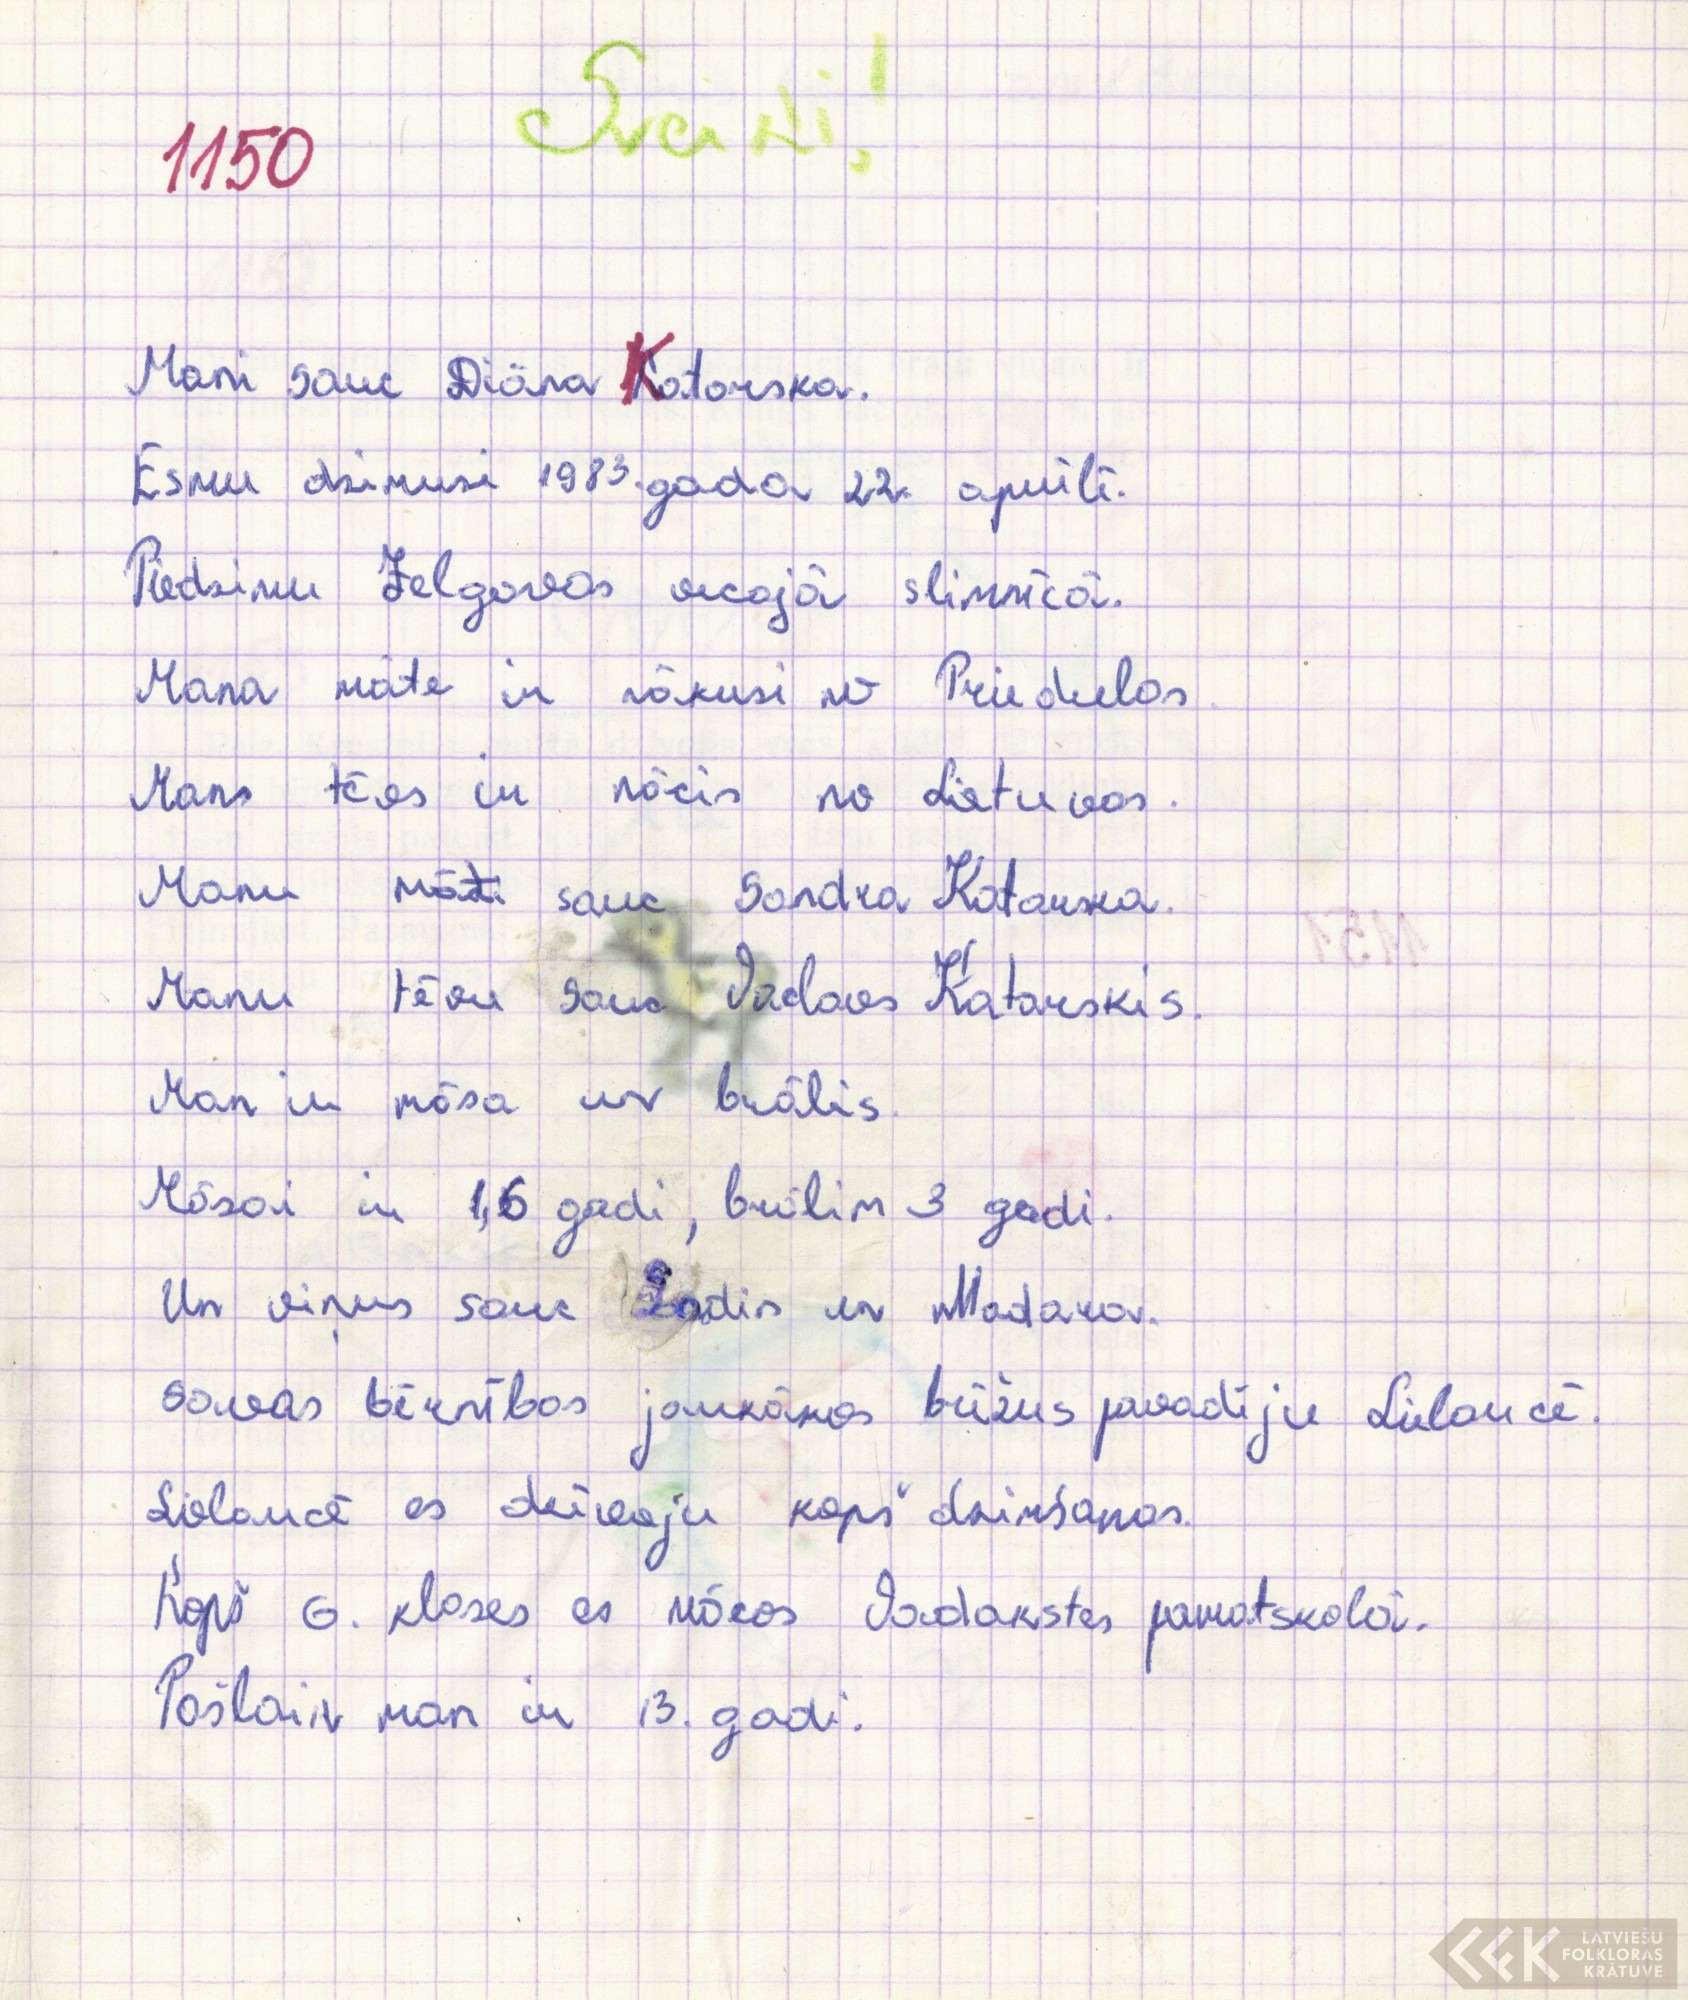 Sveiki!
1150
Mani sauc Diāna Katarska.
Esmu dzimusi 1983. gada 22. aprīlī.
Piedzimu Jelgavas vecajā slimnīcā.
Mana māte ir nākusi no Priedulas
Mans tēvs ir nācis no Lietuvas.
Manu māti sauc Sandra Katarska.
Manu tēvu sauc Vaclavs Katarskis.
Man ir māsa un brālis.
Māsai ir 1,6 gadi, brālim 3 gadi.
Un viņus sauc un Madara.
Savas bērnības jaukākos brīžus pavadīju Lielaucē.
Lielaucē es dzīvoju kopš dzimšanas.
Kopš 6. klases es mācos Vadakstes pamatskolā.
Pašlaik man ir 13. gadi.
LATVIEŠU
FOLKLORAS
KRĀTUVE